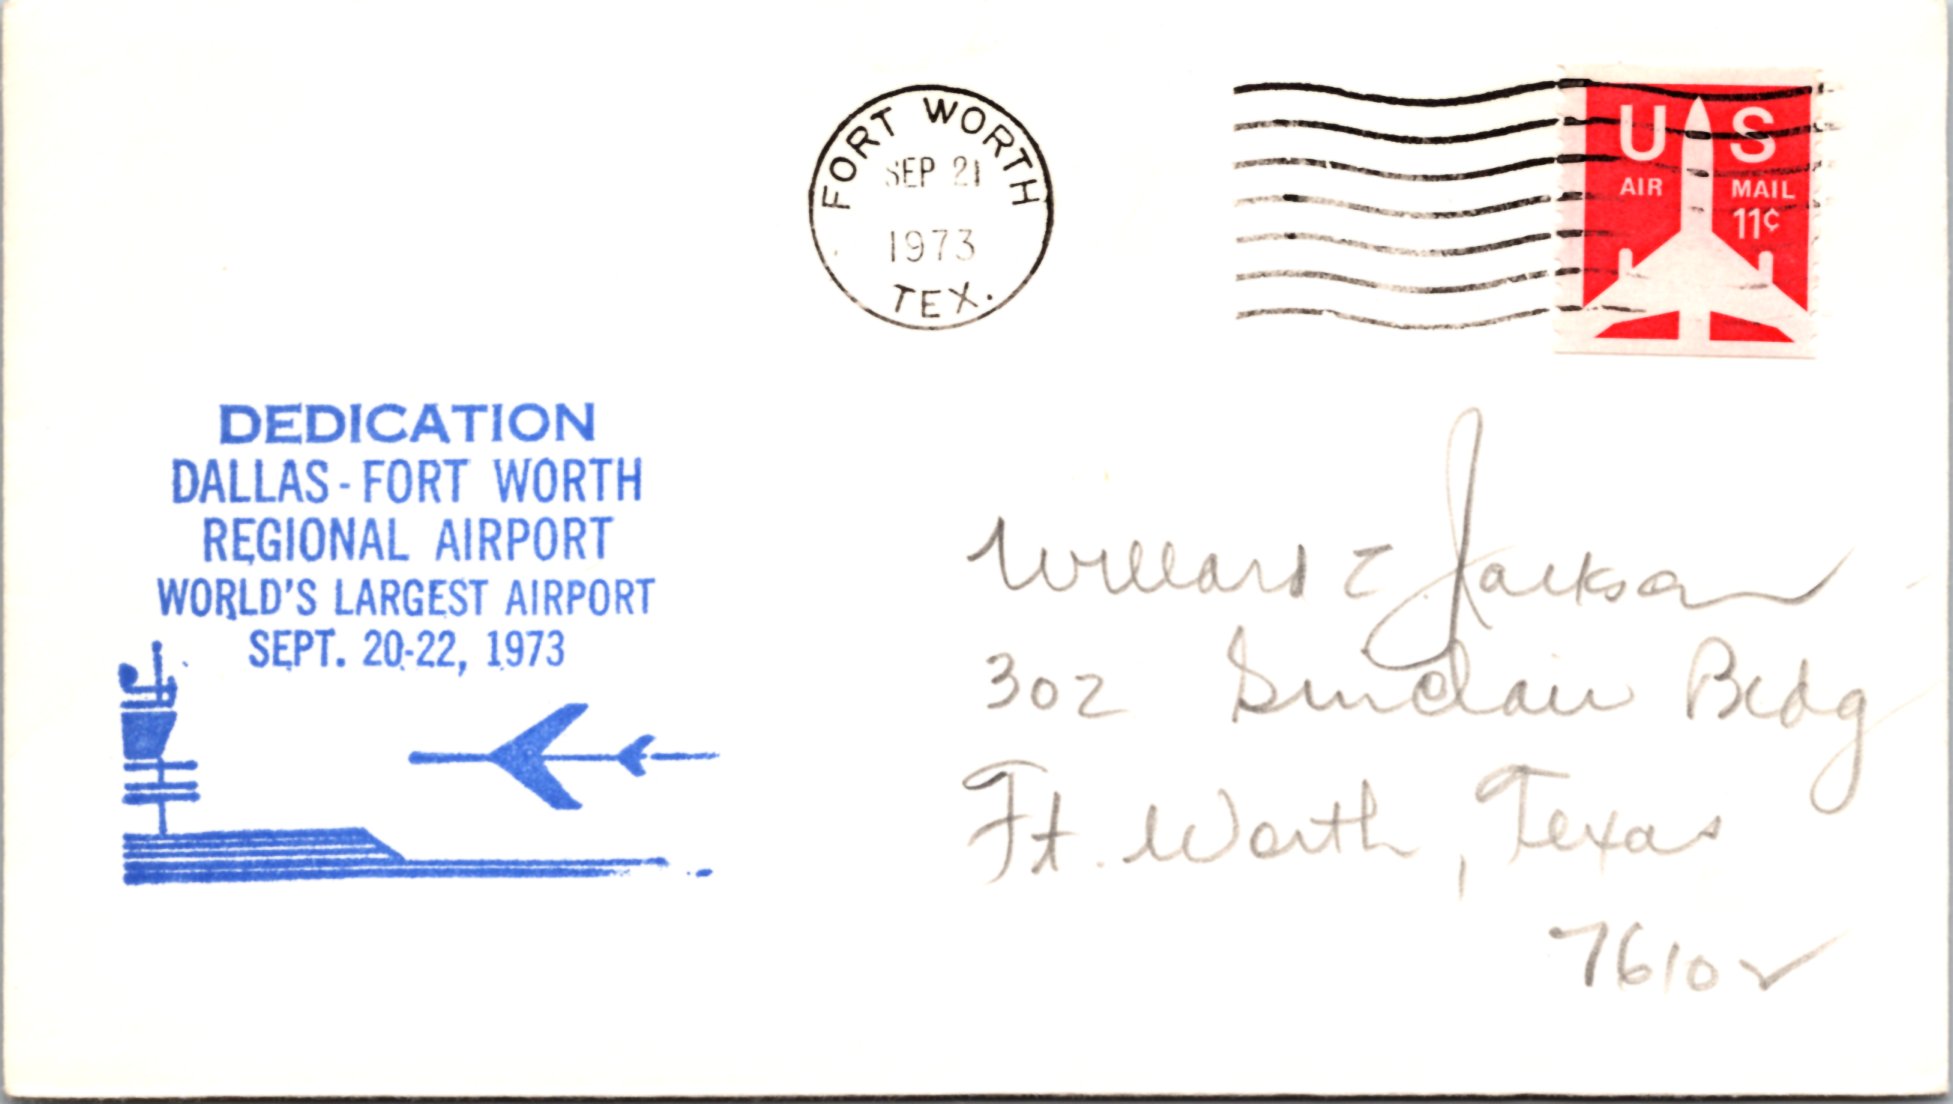 FORT WORTH
SEP 21
1973
TEX.
U S
AIR MAIL
11¢
DEDICATION
DALLAS - FORT WORTH
REGIONAL AIRPORT
WORLD'S LARGEST AIRPORT
SEPT. 20-22, 1973
Willard E Jackson
302 Sinclair Bldg
Ft. Worth, Texas
76102